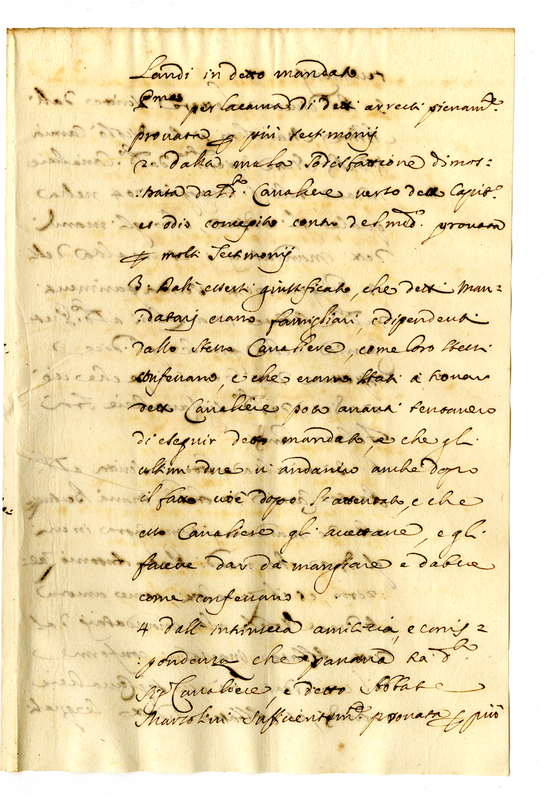 Landi in detto mandato
P.ma per la causa di detti arresti pienam.te
provata p più testimonij
2. dalla mala sodisfattione dimos=
:trata da d.o Cavaliere verso dett Capit.o
et odio concepito contro del med.o provata
p molti Testimonij
3: Dall esserti giustificato, che detti Man=
:datarij erano famigliari, e dipendenti
dallo stesso Cavaliere, come loro stessi
confessano, e che erano stati à trovar
detto Cavaliere poco avanti tentassero
di eseguir detto mandato, e che gli
ultimi due vi andarono anche dopo
il fatto cioè dopo l'attentato, e che
esso Cavaliere gli accettava, e gli
faceva dar da mangiare e da bere
come confessano
4 dall' intrinseca amicitia, e corris=
:pondenza che passava tra d.o
Sig.r Cavaliere, e detto Abbate
Marcolini sufficientem.te provata p più